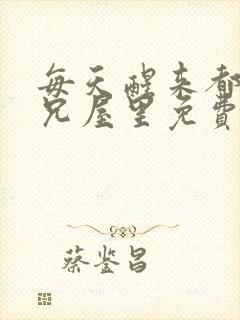 每天醒来都
兄屋里免费
蔡鉴昌